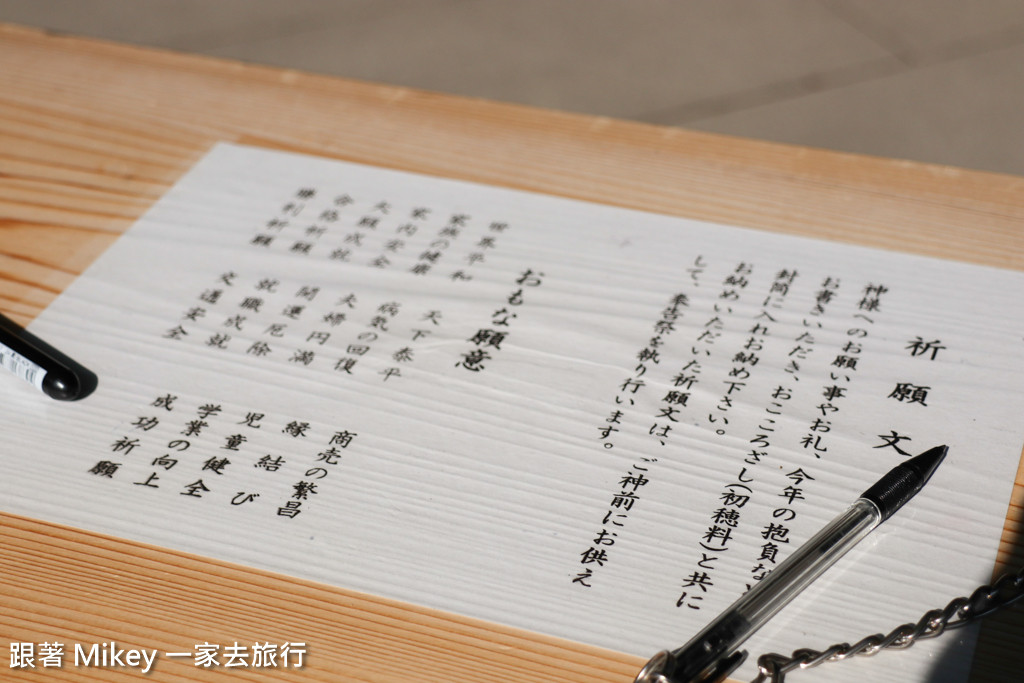 祈願文
神様へのお願い事やお礼、今年の抱負な
お書きいただき、おこころざし(初穂料)と共に
封筒に入れお納め下さい。
お納めいただいた祈願文は、ご神前にお供え
して、奉告祭を執り行います。
おもな願意
世界平和 天下泰平 商売の繁昌
家族の健康 病気の回復 縁結び
家内安全 夫婦円満 児童健全
大願成就 開運厄除 学業の向上
合格祈願 就職成就 成功祈願
勝利祈願 交通安全
跟著 Mikey 一家去旅行